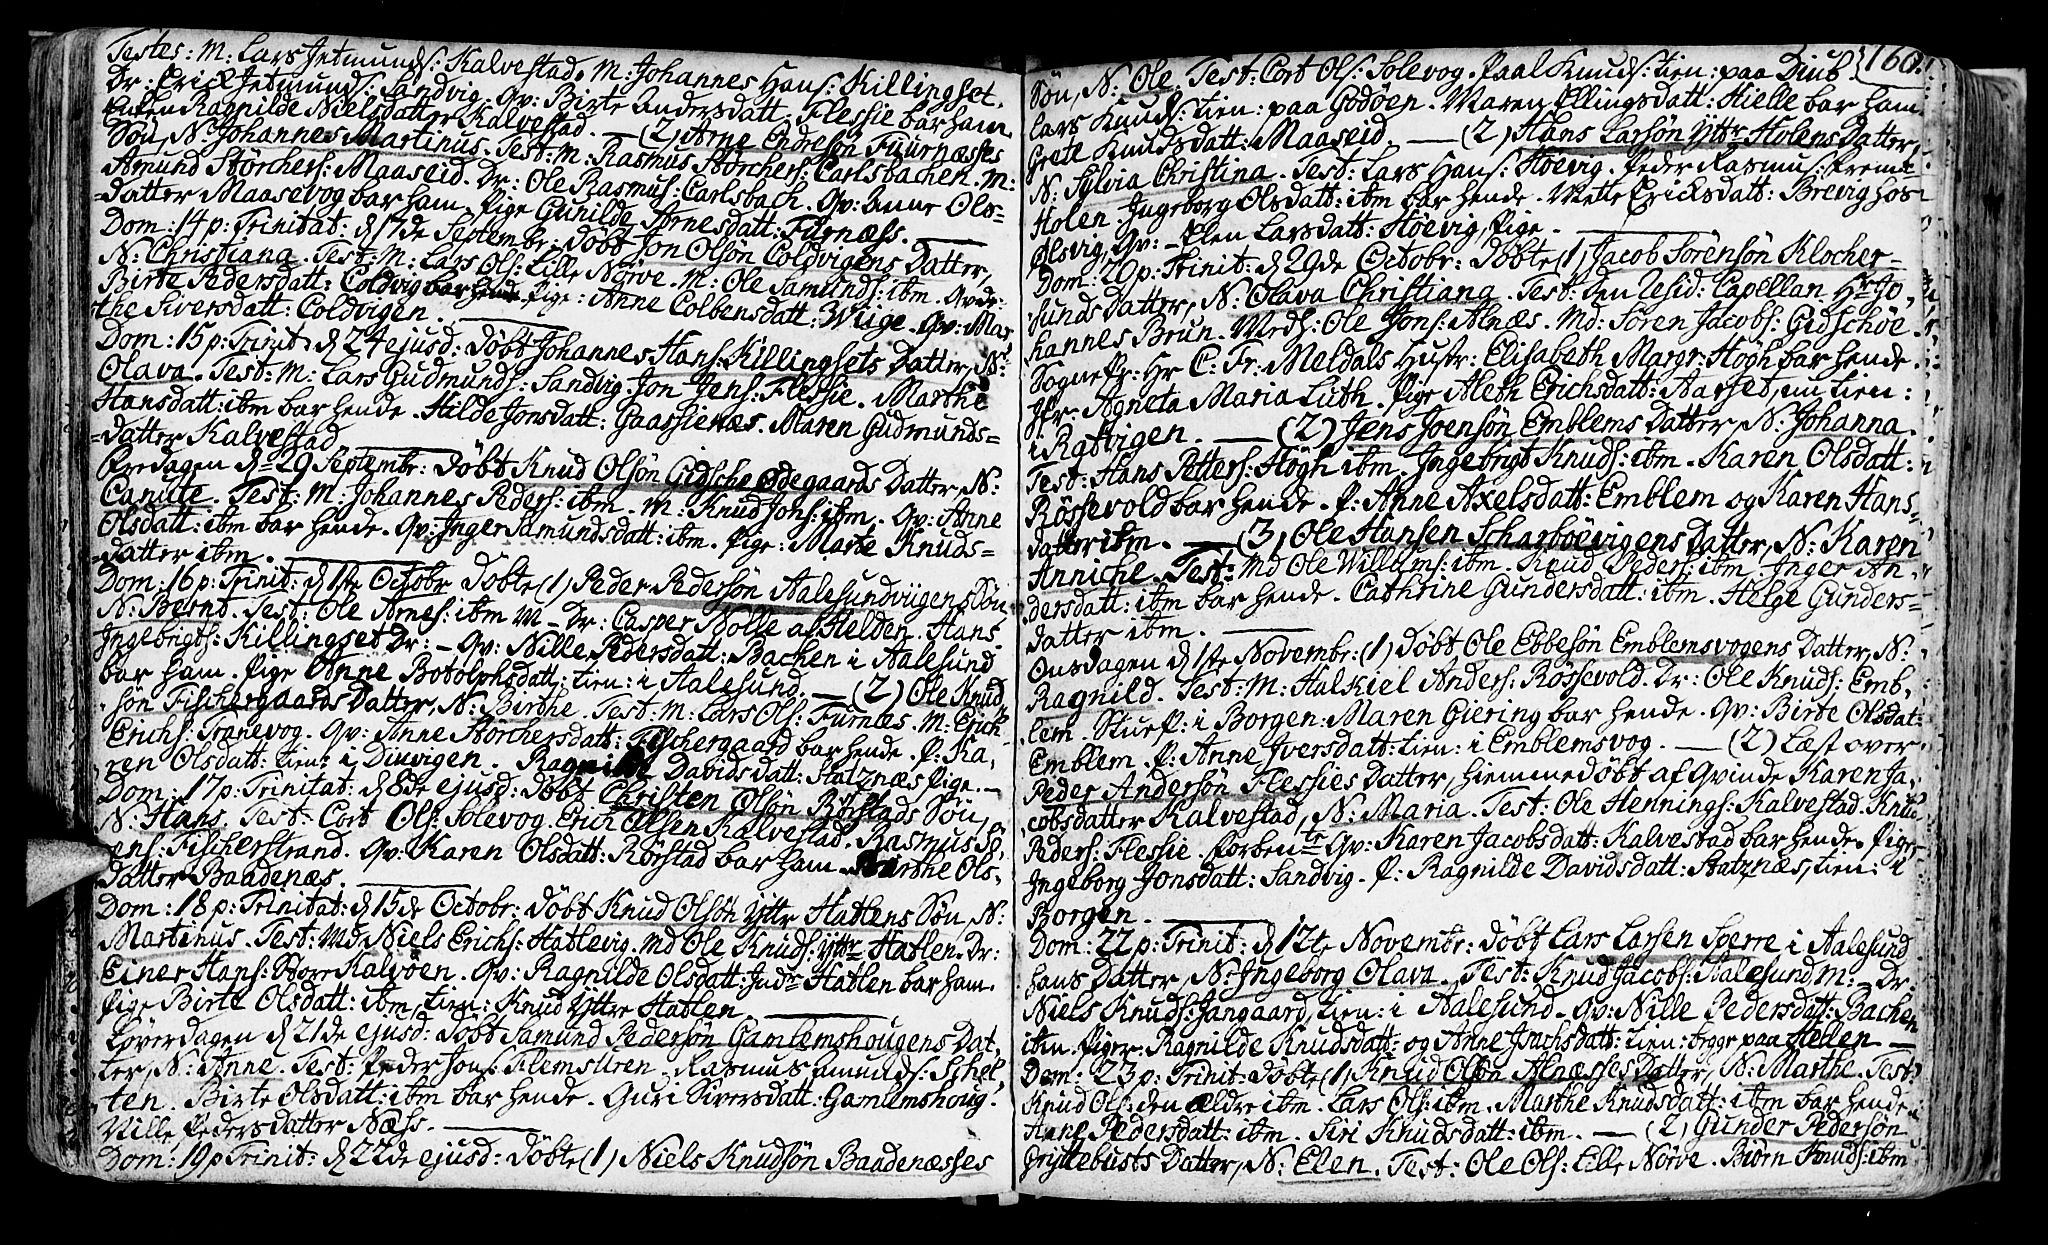 Testes: M: Lars Jetmunds: Kalvestad. M: Johannes Hans: Killingset.
Dr: Erick Jetmunds: Sandvig. Qv: Birte Andersdatt: Flessie bar ham.
Enken Ragnilde Nielsdatter Kalvestad. — (2) Arne Endresøn Fuurnæsses
Søn, N: Johannes Martinus. Test: M: Rasmus Störchers: Carlsbachen. M:
Amund Störchers: Maaseid. Dr: Ole Rasmus: Carlsbach. Qv: Anne Ols-
-datter Maasevog bar ham. Pige Gunilde Arnesdatt: Furnæss.
Dom: 14 p: Trinitat: d 17de Septembr: döbt Jon Olsön Coldvigens Datter,
N: Christiana. Test: M: Lars Ols: Lille Nörve. M: Ole Samunds: ibm.
Birte Pedersdatt: Coldvig bar hende Pige: Anne Colbensdatt: Wiige. Qv: Mar-
the Siversdatt: Coldvigen.
Dom: 15 p: Trinit: d 24 ejusd: Döbt Johannes Hans: Killingsets Datter, N:
Olava. Test: M: Lars Gudmunds: Sandvig. Jon Jens: Flessie. Marthe
Hansdatt: ibm bar hende. Hilde Jonsdatt: Gaassienæs. Maren Gudmunds-
-datter Kalvestad
Fredagen d 29 Septembr: Döbt Knud Olsön Gidsche Ödegaards Datter, N:
Canute. Test: M: Johannes Peders: ibm. M: Knud Jons: ibm. Qv: Anne
Olsdatt: ibm bar hende. Qv: Inger Samundsdatt: ibm. Pige: Marte Knuds-
-datter ibm.
Dom: 16 p: Trinit: d 1te Octobr Döbte (1) Peder Pedersön Aalesundviigens Søn,
N: Bernt. Test: Ole Arnes: ibm M — Dr: Casper Nolle af Helden. Hans
Ingebrigts: Killingset Dr: — Qv: Nille Pedersdatt: Bachen i Aalesund
bar ham. Pige Anne Botolphsdatt: tien: i Aalesund. — (2) Ole Knud-
sön Fischergaards Datter, N: Birthe. Test: M: Lars Ols: Furnæs. M: Erick
Erichs: Tranevog. Qv: Anne Störchersdatt: Fischergaard bar hende. P: Ka-
ren Olsdatt: tien: i Diuvigen. Ragnild Davidsdatt: Statznæs Pige.
Dom: 17 p: Trinitat: d 8de ejusd: döbt Christen Olsön Rörstads Søn,
N: Hans. Test: Cort Ols: Solevog. Erich Olsen Kalvestad. Rasmus Sö-
rens: Fischerstrand. Qv: Karen Olsdatt: Rörstad bar ham. Birthe Ols-
datter Baadenæs.
Dom: 18 p: Trinitat: d 15de Octobr: döbt Knud Olsön Yttr Hatlens Søn, N:
Martinus. Test: Md Niels Erichs: Hatlevig. Md Ole Knuds: Yttr Hatlen. Dr:
Einer Hans: Store Kalvöen. Qv: Ragnilde Olsdatt: Indr Hatlen bar ham.
Pige Birte Olsdatt: ibm, tien: Knud Yttre Hatlen.
Löverdagen d 21de ejusd: Döbt Samund Pedersön Gamlemshougens Dat-
ter, N: Anne. Test: Peder Jons: Flemsuren. Rasmus Amunds: Schel-
ten. Birte Olsdatt: ibm bar hende. Guri Siversdatt: Gamlemshoug.
Ville Pedersdatter Næss.
Dom: 19 p Trinit: d 22de ejusd: Döbte (1) Niels Knudsön Baadenæsses
160.
Søn, N: Ole Test: Cort Ols: Solevog. Paal Knuds: tien: paa Diub
Lars Knuds: tien: paa Godøen. Maren Ellingsdatt: Hielle bar ham
Grete Knudsdatt: Maaseid. — (2) Hans Larsön Yttr Holens Datter,
N: Sylvia Christina. Test: Lars Hans: Höevig. Peder Rasmus: Frem
Holen. Ingeborg Olsdatt: ibm bar hende. Mette Ericksdatt: Brevig hos
Ølsvig, Qv: — Elen Larsdatt: Höevig, Pige.
Dom: 20 p: Trinit: d 29de Octobr: Döbte (1) Jacob Sörensön Klocher-
sunds Datter, N: Olava Christiana. Test: Den Resid: Capellan Hr Jo-
hannes Brun. Meds: Ole Jons: Alnæs. Md: Sören Jacobs: Gidschöe.
Sogne Pr: Hr C: Fr: Meldals Hustr: Elisabeth Margr: Högh bar hende.
Jfr: Agneta Maria Lüth. Pige Aleth Erichsdatt: Aarset, nu tien:
i Ratvigen. — (2) Jens Joensön Emblems Datter N: Johanna.
Test: Hans Petters: Högh ibm. Ingebrigt Knuds: ibm. Karen Olsdatt:
Rössevold bar hende. P: Anne Axelsdatt: Emblem og Karen Hans-
datter ibm. — (3) Ole Hansen Scharböevigens Datter, N: Karen
Anniche. Test: Md Ole Willums: ibm. Knud Peders: ibm. Inger An-
dersdatt: ibm bar hende. Cathrine Gundersdatt: ibm. Helge Gunders-
datter ibm.
Onsdagen d 1te Novembr: (1) Döbt Ole Ebbesön Emblemsvogens Datter, N:
Ragnild. Test: M: Halkiel Anders: Rössevold. Dr: Ole Knuds: Emb-
lem. Stue P: i Borgen: Maren Giering bar hende. Qv: Birte Olsdat-
Emblem. P: Anne Iversdatt: tien: i Emblemsvog. — (2) Læst over
Peder Andersön Flessies Datter, hiemmedöbt af Qvinde Karen Ja-
cobsdatter Kalvestad, N: Maria. Test: Ole Hennings: Kalvestad. Knud
Peders: Flessie. Forbente Qv: Karen Jacobsdatt: Kalvestad bar hende. Piger
Ingeborg Jonsdatt: Sandvig. P: Ragnilde Davidsdatt: Statznæs, tien: i
Borgen.
Dom: 22 p: Trinit: d 12te Novembr: döbt Lars Larsen Sperre i Aalesund
hans Datter, N: Ingeborg Olava. Test: Knud Jacobs: Aalesund M: — Dr:
Niels Knuds: Gangaard, tien: i Aalesund. Qv: Nille Pedersdatt: Bachen
ibm. Piger: Ragnilde Knudsdatt: og Anne Isachsdatt: tien: begge paa Helden —
Dom: 23 p: Trinit: Döbte (1) Knud Olsön Alnæsses Datter, N: Marthe. Test:
Knud Ols: den Ældre ibm. Lars Ols: ibm. Marthe Knudsdatt: ibm bar hende.
Hans Pedersdatt: ibm. Siri Knudsdatt: ibm. — (2) Gunder Pedersön
Gryttebusts Datter, N: Elen. Test: Ole Ols: Lille Nörve. Biörn Knuds: ibm